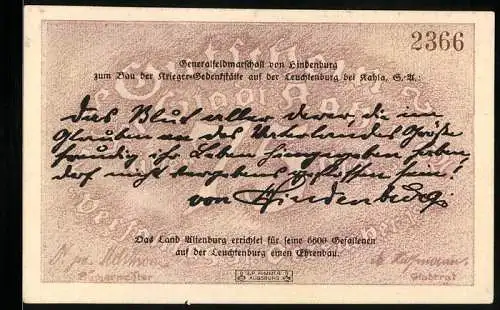 2366
Generalfeldmarschall von Hindenburg
zum Bau der Krieger-Gedenkstätte auf der Leuchtenburg bei Kahla, S.-A.:
Das Blut aller derer, die im
Glauben an des Vaterlandes Größe
freudig ihr Leben hingegeben haben,
darf nicht vergebens geflossen sein!
von Hindenburg
Das Land Altenburg errichtet für seine 6600 Gefallenen
auf der Leuchtenburg einen Ehrenbau.
Bürgermeister
Stadtrat
AUGSBURG